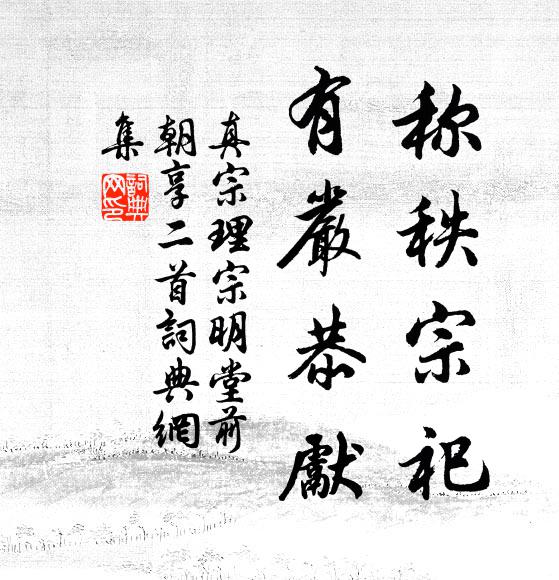 称秩宗祀
有嚴恭獻
真宗理宗明堂前
朝享二首詞典網
集
詞典
网印